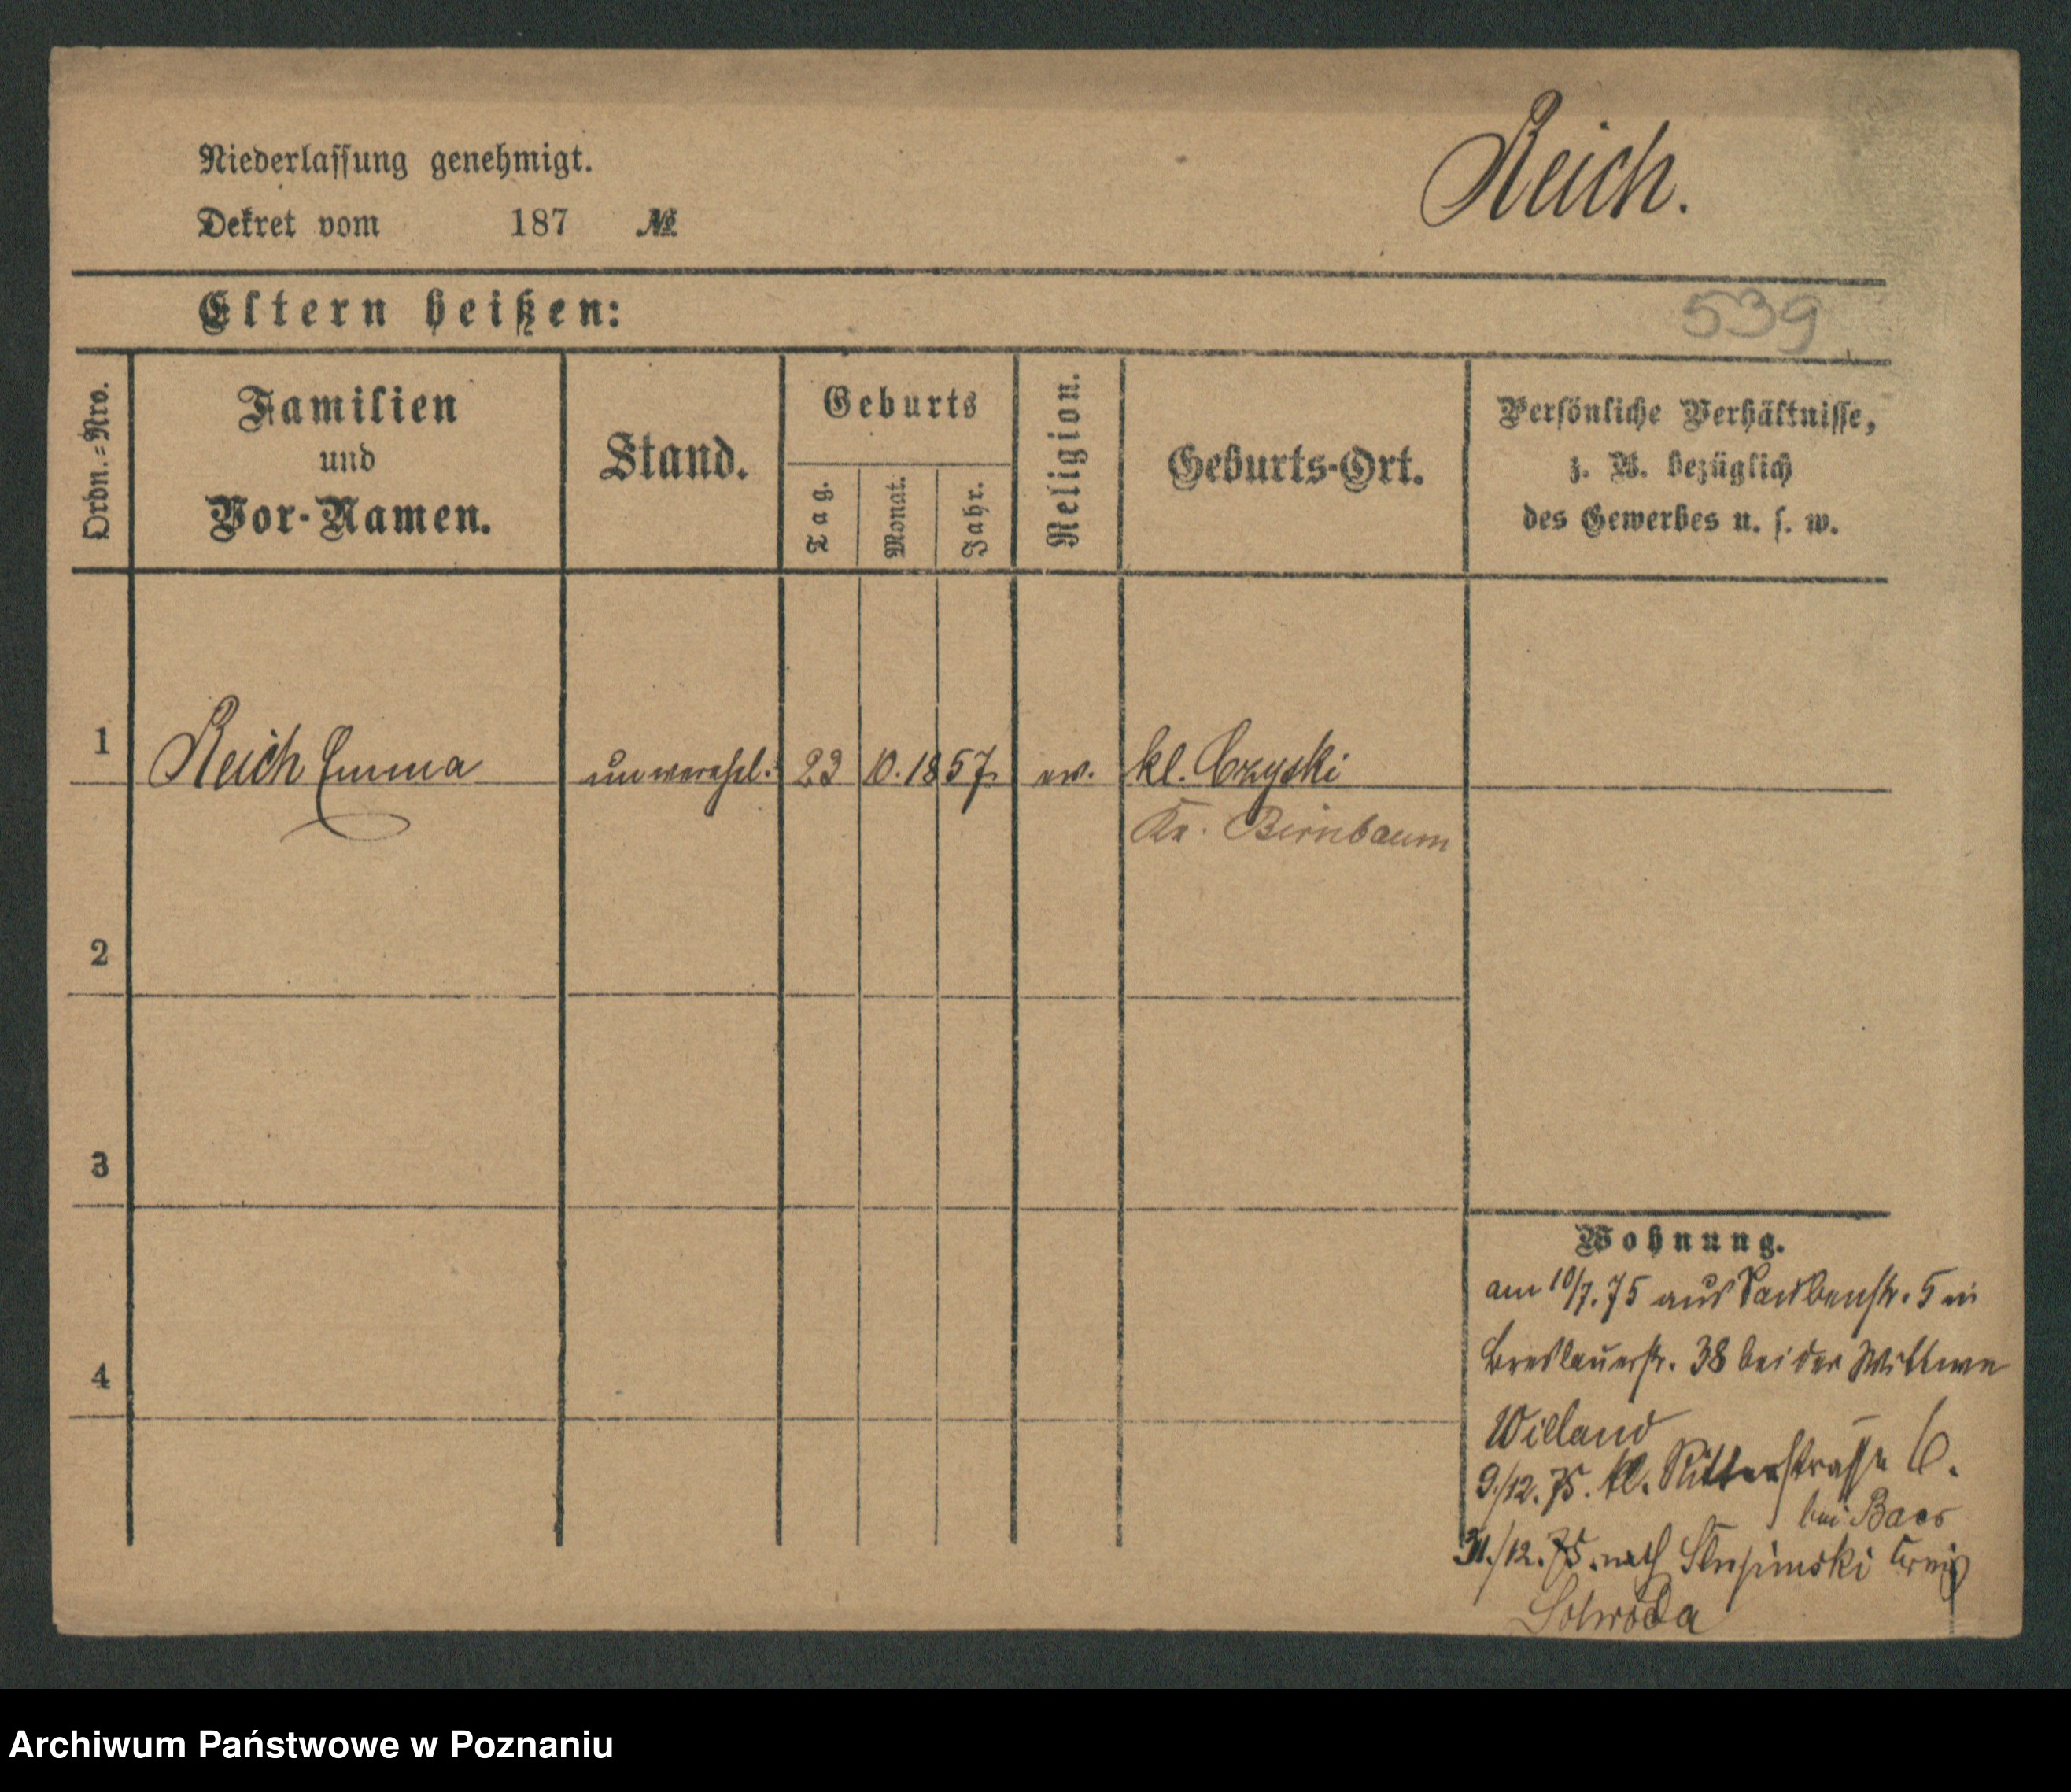 Niederlassung genehmigt.
Dekret vom 187 №
Reich.
Eltern heißen:
539
Ordn.=Nro.
Familien
und
Vor-Namen.
Stand.
Geburts
Tag.
Monat.
Jahr.
Religion.
Geburts-Ort.
Persönliche Verhältnisse,
z. B. bezüglich
des Gewerbes u. s. w.
1 Reich Emma unverehel. 23 10. 1857. ev. kl. Czyski
Kr. Birnbaum
2
3
4
Wohnung.
am 10/7. 75 aus Taubenstr. 5 in
Breslauerstr. 38 bei der Wittwe
Willand
9/12. 75. kl. Ritterstrasse 6.
bei Baer
31./12. 75. nach Kreis
Schroda
Archiwum Państwowe w Poznaniu